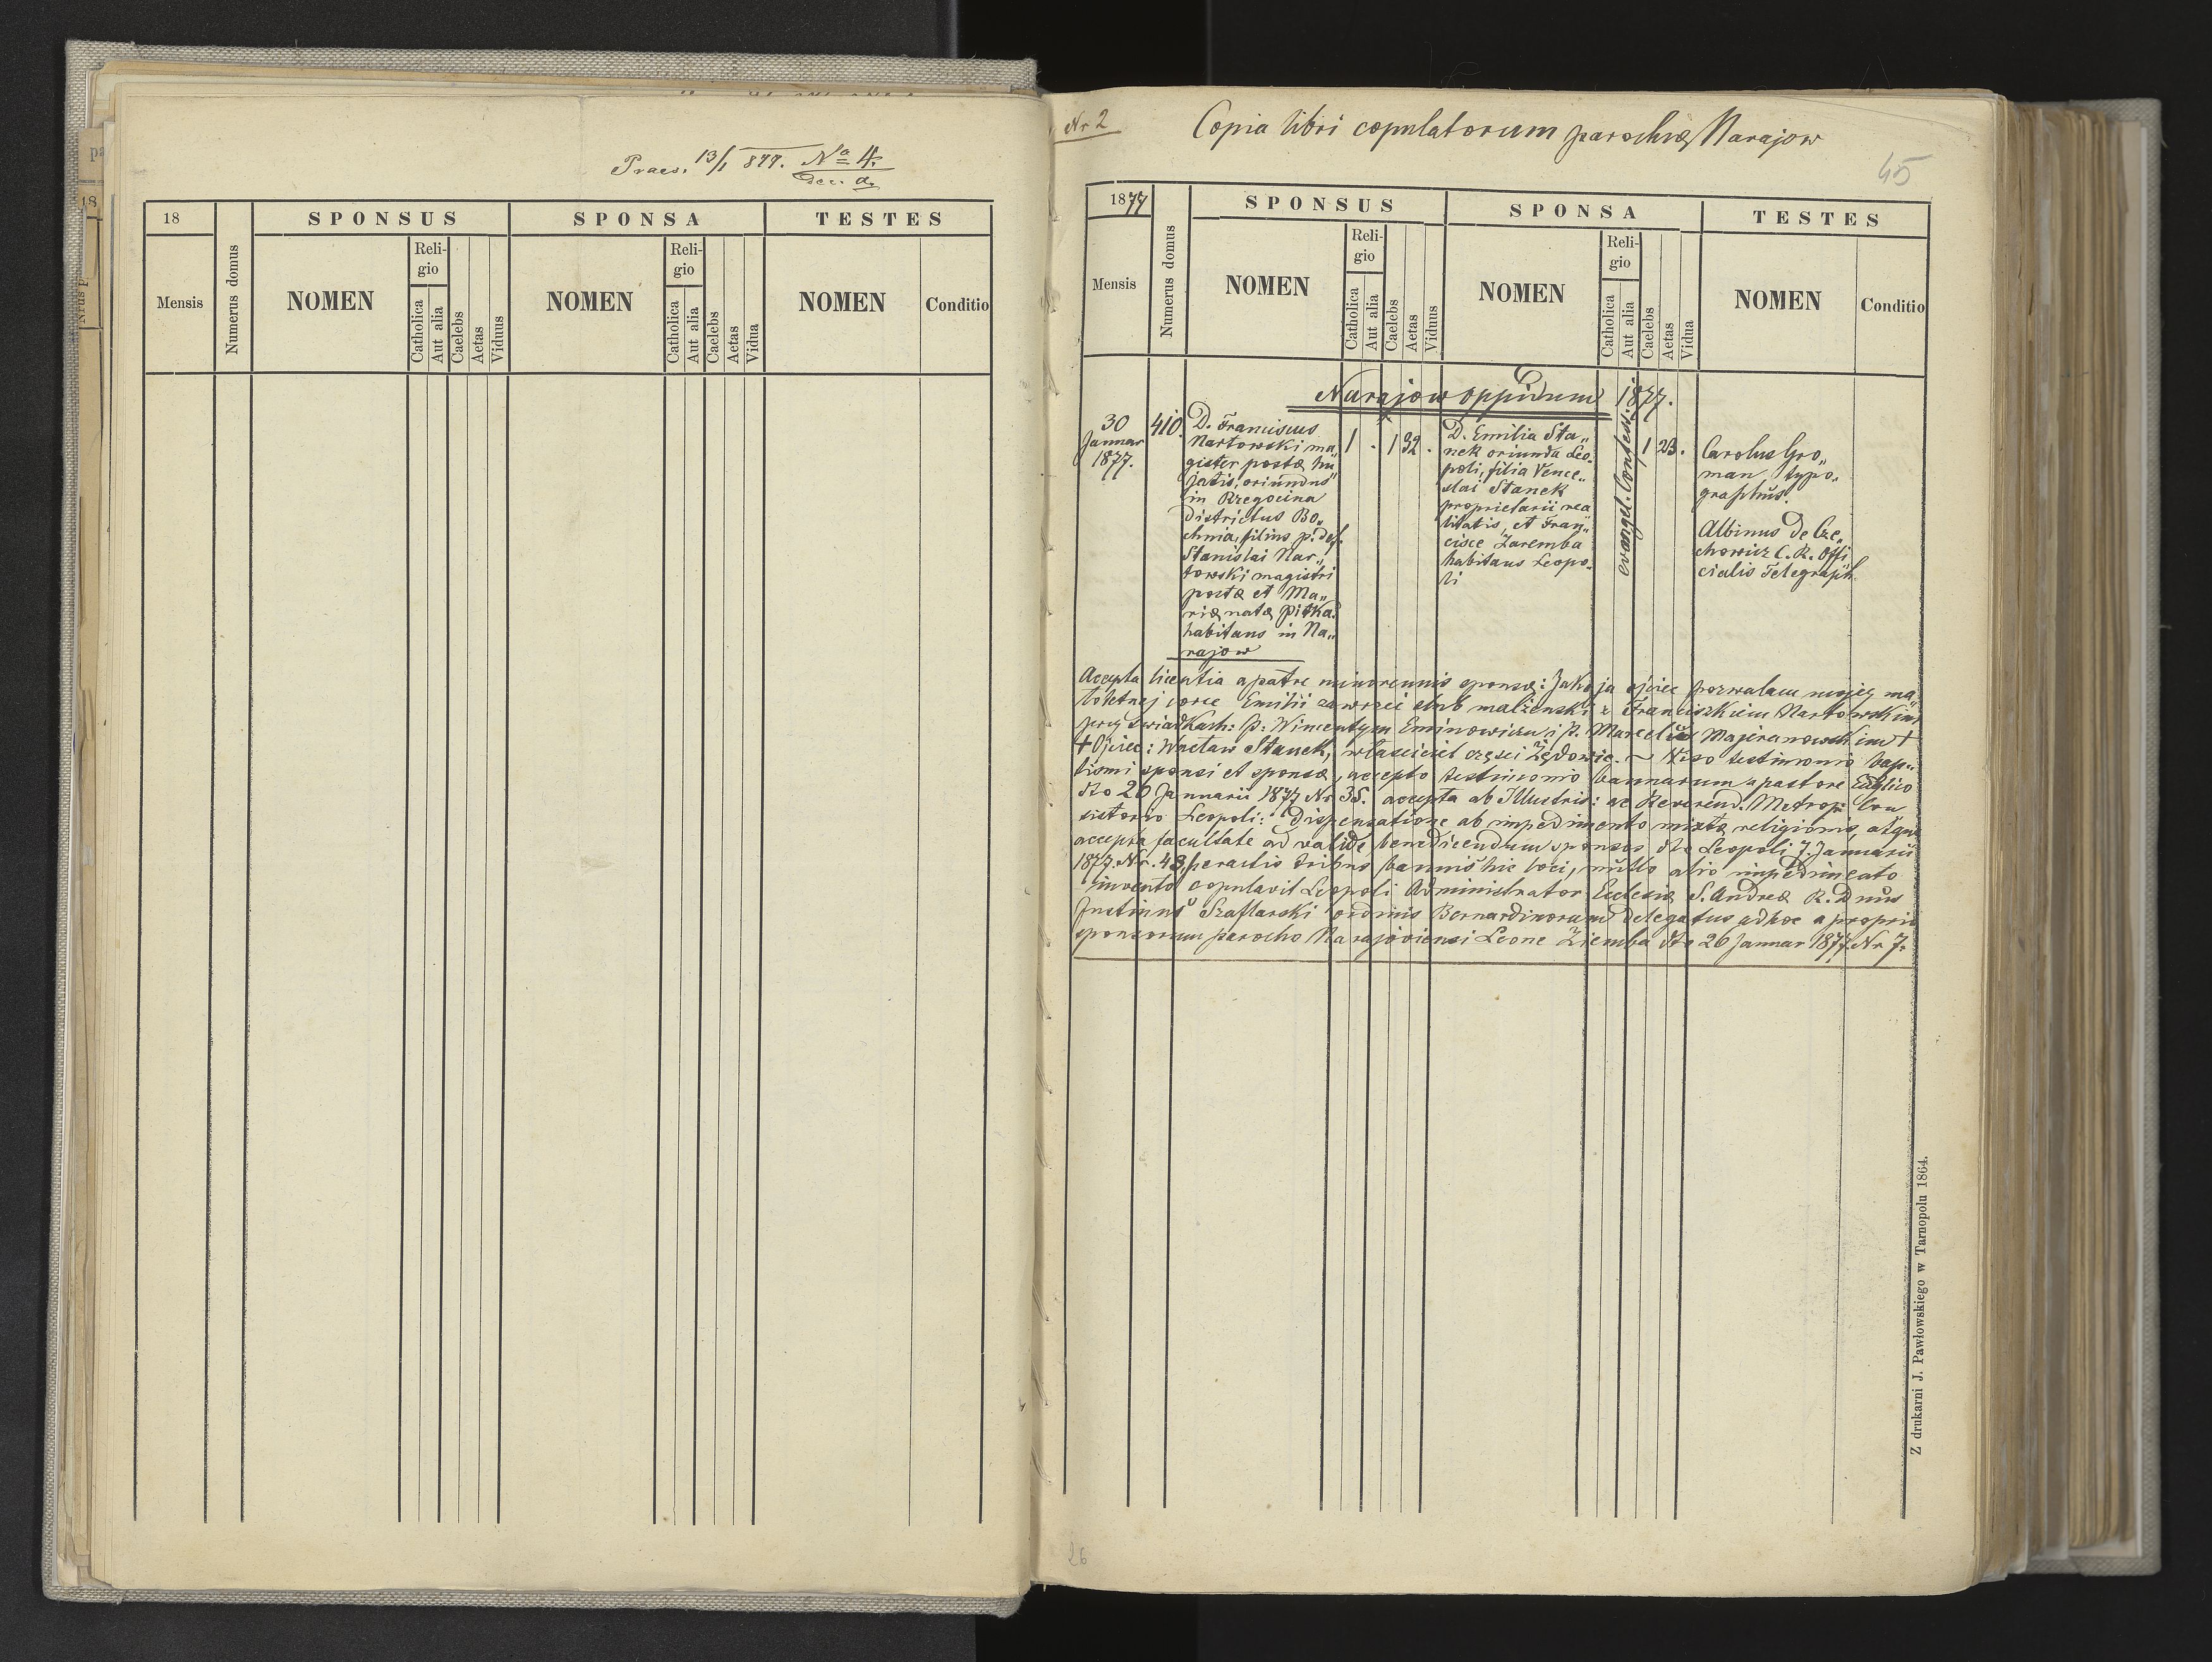 Praes. 13/1 877. Nº 4.
18
SPONSUS
SPONSA
TESTES
Mensis
Numerus domus
NOMEN
Religio
Catholica
Aut alia
Caelebs
Aetas
Viduus
NOMEN
Religio
Catholica
Aut alia
Caelebs
Aetas
Vidua
NOMEN
Conditio
Nr 2
Copia libri copulatorum parochiæ Narajow
45
1877
SPONSUS
SPONSA
TESTES
Mensis
Numerus domus
NOMEN
Religio
Catholica
Aut alia
Caelebs
Aetas
Viduus
NOMEN
Religio
Catholica
Aut alia
Caelebs
Aetas
Vidua
NOMEN
Conditio
Narajow oppidum 1877.
30
Januar
1877.
410.
D. Franciscus
Nartowski ma„
gister postæ hu„
jatis, oriundus
in Rzegocina
districtus Bo„
chnia, filius p. def.
Stanislai Nar„
towski magistri
postæ et Ma„
riæ natæ Pitka
habitans in Na„
rajow
1 . 1 32 .
D. Emilia Sta„
nek oriunda Leo„
poli, filia Vence„
slai Stanek
proprietarii rea
litatis, et Fran„
cisce Zaremba
habitans Leopo„
li
evangel. Confess.
1 23 .
Carolus Gro„
man typo„
graphus.
Albinus de Cze„
chowicz C. R. Offi
cialis Telegraph.
Accepta licentia a patre minorennis sponsæ: Jako ja ojciec pozwalam mojej ma„
loletnej corce Emilii zawrzeć slub malżenski z Franciszkiem Nartowskim
przy swiadkach: p: Wincentym Eminowiczu i p. Marcelim Majeranowskim +
+ Ojciec: Wacław Stanek, wlasciciel częsci Zędowic. ~ Viso testimonio bap„
tismi sponsi et sponsæ, accepto testimonio bannorum a pastore Euglico
dto 20 Januarii 1877 Nr 35. accepta ab Illustris: ac Reverend. Metrop: Con
sistorio Leopoli: Dispensatione ab impedimento mixtæ religionis, atque
accepta facultate ad valide benedicendum sponsos dto Leopoli 7. Januarii
1877. Nr. 48, peractis tribus bannis hic loci, nullo alio impedimento
invento copulavit Leopoli Administrator Ecclesiæ S. Andreæ R. Dnus
Justinus Szaflarski ordinis Bernardinorum delegatus adhoc a proprio
sponsorum parocho Narajoviensi Leone Ziemba dto 26 Januar 1877 Nr 7.
Z drukarni J. Pawłowskiego w Tarnopolu 1864.
26